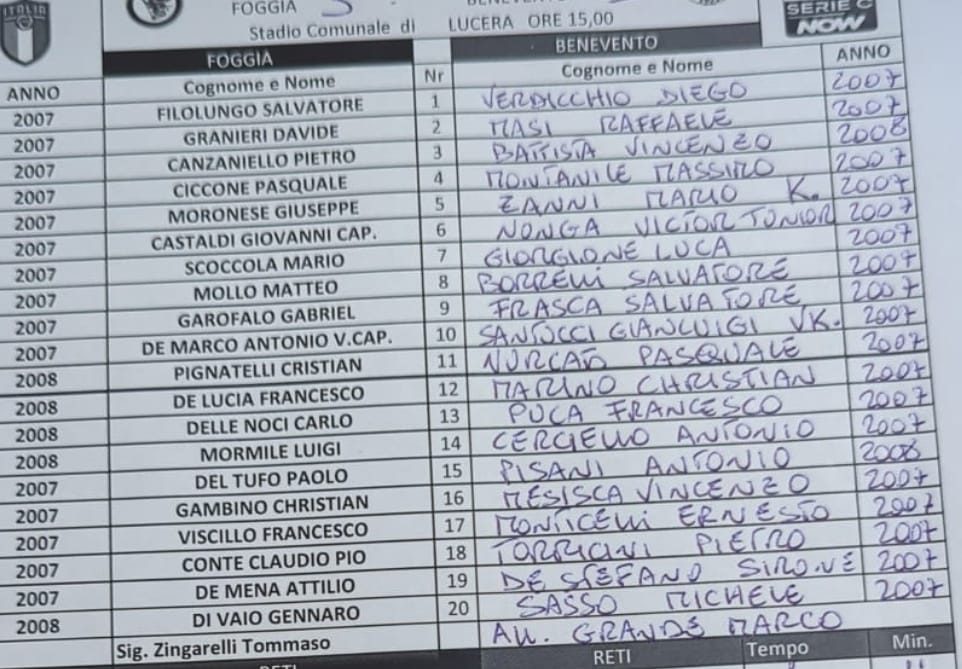 ITALIA FOGGIA SERIE C
NOW
Stadio Comunale di LUCERA ORE 15,00
FOGGIA BENEVENTO
ANNO Cognome e Nome Nr Cognome e Nome ANNO
2007 FILOLUNGO SALVATORE 1 VERDICCHIO DIEGO 2007
2007 GRANIERI DAVIDE 2 MASI RAFFAELE 2007
2007 CANZANIELLO PIETRO 3 BATTISTA VINCENZO 2008
2007 CICCONE PASQUALE 4 MONTANILE MASSIMO 2007
2007 MORONESE GIUSEPPE 5 ZANNI MARIO K. 2007
2007 CASTALDI GIOVANNI CAP. 6 NONGA VICTOR JUNIOR 2007
2007 SCOCCOLA MARIO 7 GIORGIONE LUCA 2007
2007 MOLLO MATTEO 8 BORRELLI SALVATORE 2007
2007 GAROFALO GABRIEL 9 FRASCA SALVATORE 2007
2007 DE MARCO ANTONIO V.CAP. 10 SANTUCCI GIANLUIGI VK. 2007
2008 PIGNATELLI CRISTIAN 11 PASQUALE 2007
2008 DE LUCIA FRANCESCO 12 MARINO CHRISTIAN 2007
2008 DELLE NOCI CARLO 13 PUCA FRANCESCO 2007
2008 MORMILE LUIGI 14 CERCIELLO ANTONIO 2007
2007 DEL TUFO PAOLO 15 PISANI ANTONIO 2008
2007 GAMBINO CHRISTIAN 16 MESISCA VINCENZO 2007
2007 VISCILLO FRANCESCO 17 MONTICELLI ERNESTO 2007
2007 CONTE CLAUDIO PIO 18 PIETRO 2007
2007 DE MENA ATTILIO 19 DE STEFANO SIMONE 2007
2008 DI VAIO GENNARO 20 SASSO MICHELE 2007
Sig. Zingarelli Tommaso All. GRANDE MARCO
RETI RETI Tempo Min.